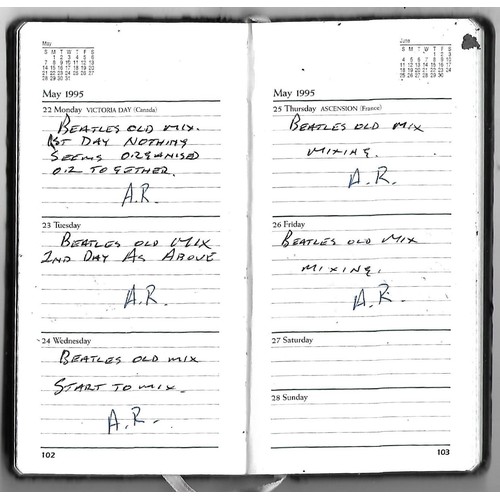 May
S M T W T F S
1 2 3 4 5 6
7 8 9 10 11 12 13
14 15 16 17 18 19 20
21 22 23 24 25 26 27
28 29 30 31
May 1995
22 Monday VICTORIA DAY (Canada)
BEATLES OLD MIX.
1ST DAY NOTHING
SEEMS ORGANISED
OR TOGETHER.
A.R.
23 Tuesday
BEATLES OLD MIX
2ND DAY AS ABOVE
A.R.
24 Wednesday
BEATLES OLD MIX
START TO MIX.
A.R.
102
June
S M T W T F S
May 1995
25 Thursday ASCENSION (France)
BEATLES OLD MIX
MIXING.
A.R.
26 Friday
BEATLES OLD MIX
MIXING.
A.R.
27 Saturday
28 Sunday
103